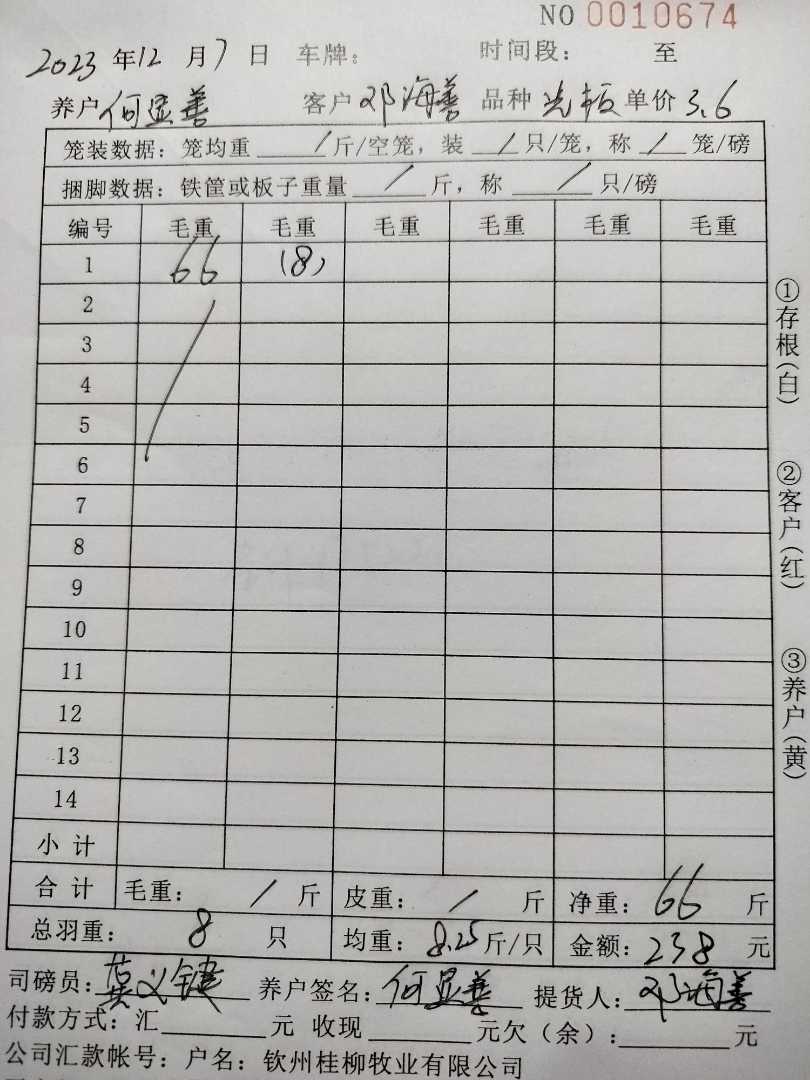 NO 0010674
2023 年 12 月 7 日 车牌： 时间段： 至
养户 何显善 客户 邓海善 品种 单价 3.6
笼装数据：笼均重 / 斤/空笼，装 / 只/笼，称 / 笼/磅
捆脚数据：铁筐或板子重量 / 斤，称 / 只/磅
编号 毛重 毛重 毛重 毛重 毛重 毛重
1 66 (8)
2
3
4
5
6
7
8
9
10
11
12
13
14
小 计
合 计 毛重： / 斤 皮重： / 斤 净重：66 斤
总羽重： 8 只 均重：8.25 斤/只 金额：238 元
司磅员： 养户签名：何显善 提货人：邓海善
付款方式：汇 元 收现 元欠（余）： 元
公司汇款帐号：户名：钦州桂柳牧业有限公司
①存根(白) ②客户(红) ③养户(黄)